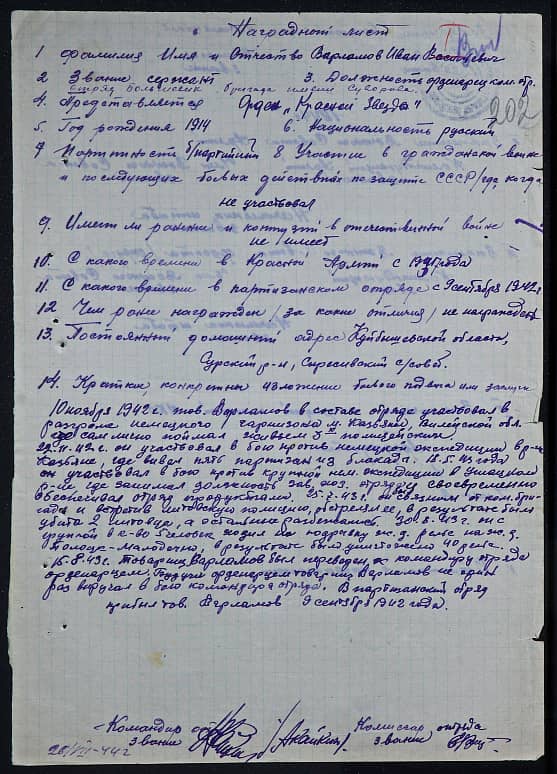 Наградной лист
1 Фамилия Имя и Отчество Варламов Иван Васильевич
2 Звание сержант 3. Должность ординарец ком. отр.
отряд Большевик бригада имени Суворова
4. Представляется Орден „Красной Звезды"
202
5. Год рождения 1914 6. Национальность русский
7 Партийность б/партийный 8 Участие в гражданской войне
и последующих боевых действиях по защите СССР/где, когда
не участвовал
9. Имеет ли ранения и контузии в отечественной войне
не имеет
10. С какого времени в Красной Армии с года
11. С какого времени в партизанском отряде с 9 сентября 1942 г.
12 Чем ранее награжден / за какие отличия / не награжден
13. Постоянный домашний адрес Куйбышевской области,
Сурский р-н, с/сов.
14. Краткое, конкретное изложение боевого подвига или заслуги
10 ноября 1942 г. тов. Варламов в составе отряда участвовал в
разгроме немецкого гарнизона м. Казьяны, Вилейской обл.
где сам лично поймал живьем 5 полицейских.
22-11-42 г. он участвовал в бою против немецкой экспедиции в р-не
Казьяне, где бывал пять партизан из блакада. 18.5.43 года
он участвовал в бою против крупной нем. экспедиции в Ушацком
р-не где занимал должность зав. хоз. отряда и своевременно
обеспечивал отряд продуктами. 25-7-43 г. связным от ком. бри-
гады и встретив литовскую полицию, обстрелял, в результате было
убито 2 литовца, а остальные разбежались. 30.8.43 г. он с
группой в к-во 5 человек ходил на подрывку ж.д. рельс на ж.д.
Полоцк-Молодечно, в результате было уничтожено 40 рельс.
15.8.43 г. товарищ Варламов был переведен, к командиру отряда
ординарцем. Будучи ординарцем товарищ Варламов не один
раз выручал в бою командира отряда. В партизанский отряд
прибыл тов. Варламов 9 сентября 1942 года.
Командир отр. Комиссар отряда
звание /Акайкин/ звание
20/VII-44 г